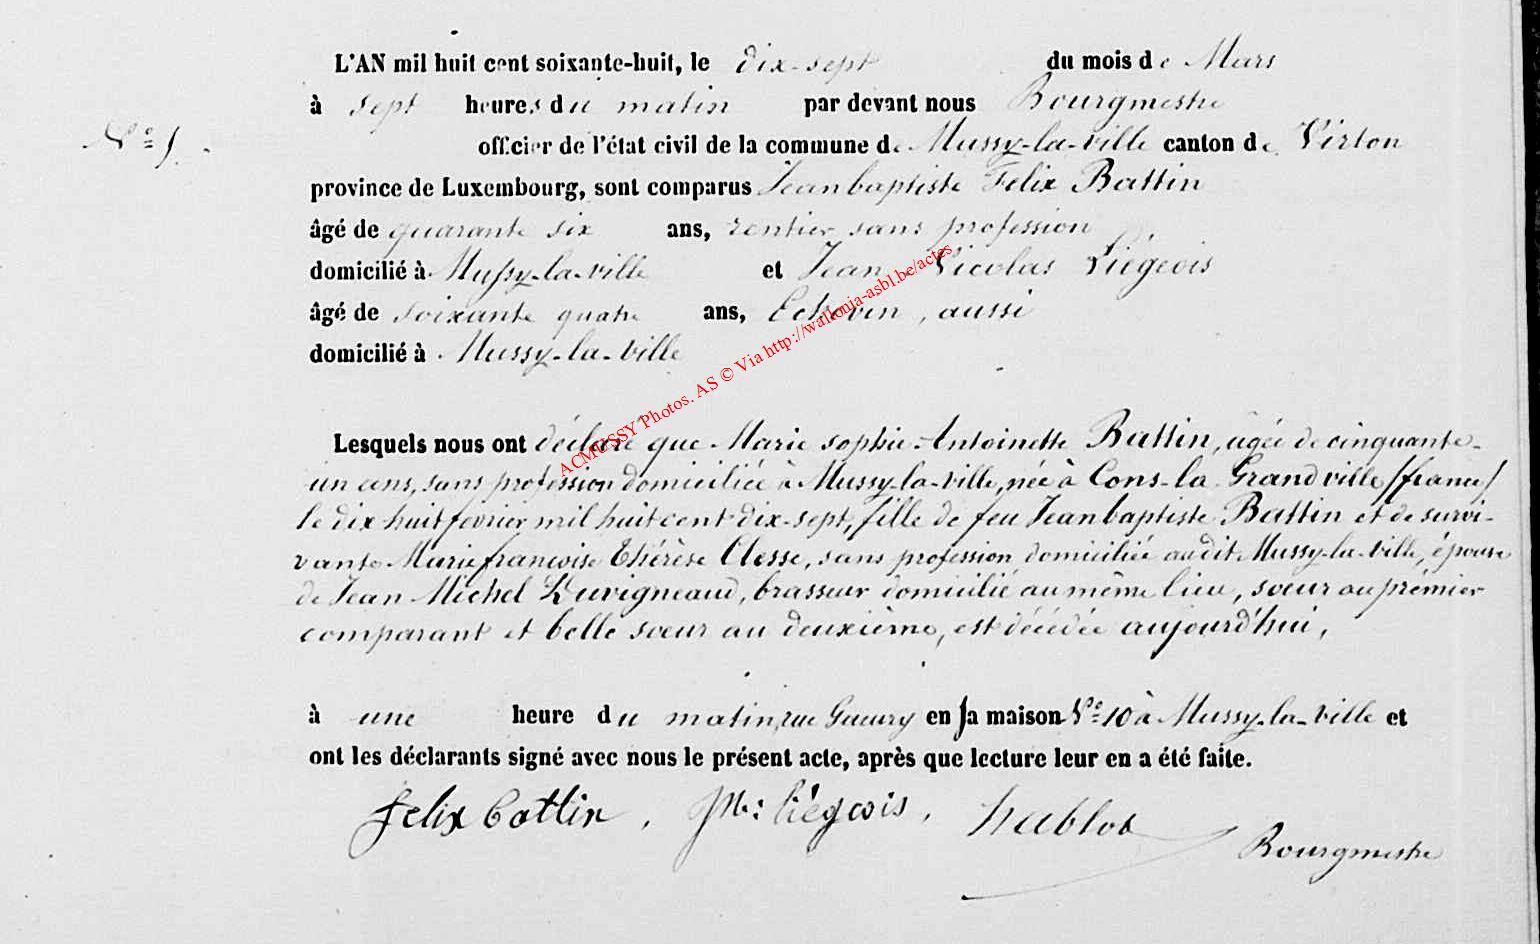 L'AN mil huit cent soixante-huit, le dix-sept du mois de Mars
à sept heures du matin par devant nous Bourgmestre
N° 5.
officier de l'état civil de la commune de Mussy-la-ville canton de Virton
province de Luxembourg, sont comparus Jeanbaptiste Felix Battin
âgé de quarante six ans, rentier sans profession
domicilié à Mussy-la-ville et Jean Nicolas Liégeois
âgé de soixante quatre ans, Echevin, aussi
domicilié à Mussy-la-ville
ACMUSSY Photos. AS © Via http://wallonia-asbl.be/actes
Lesquels nous ont déclaré que Marie sophie Antoinette Battin, agée de cinquante-
un ans, sans profession domiciliée à Mussy-la-ville, née à Cons-la-Grandville (france)
le dix huit fevrier mil huit cent dix-sept, fille de feu Jeanbaptiste Battin et de survi-
vante Marie françoise Thérèse Clesse, sans profession domiciliée audit Mussy-la-ville, épouse
de Jean Michel Duvigneaud, brasseur domicilié au même lieu, sœur au premier
comparant et belle sœur au deuxième, est décédée aujourd'hui,
à une heure du matin, rue en sa maison N° 10 à Mussy-la-ville et
ont les déclarants signé avec nous le présent acte, après que lecture leur en a été faite.
Felix Battin. Liégeois. hablot
Bourgmestre